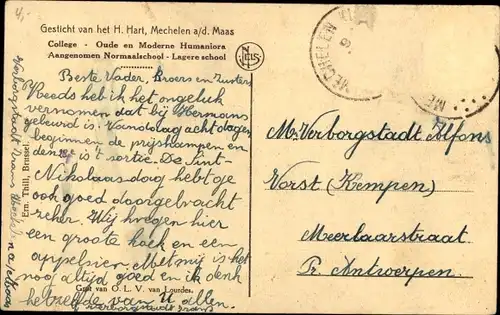 4,-
Gesticht van het H. Hart, Mechelen a/d. Maas
College - Oude en Moderne Humaniora
Aangenomen Normaalschool - Lagere school
Beste Vader, Broers en Zusters
Reeds heb ik het ongeluk
vernomen dat bij Hermans
gebeurd is. Vandaag acht dagen
beginnen de prijskampen en
den is 't sortie. De Sint-
Nikolaasdag hebt ge
ook goed doorgebracht
zeker. Wij kregen hier
een groote koek en een
appelsien. Met mij is het
nog altijd goed en ik denk
hetzelfde van U allen.
Verborgstadt Frans
Grot van O. L. V. van Lourdes.
Ern. Thill, Brussel.
Verborgstadt Frans Mechelen a/d Maas
MECHELEN
ME
Mr. Verborgstadt Alfons
Vorst (Kempen)
Meerlaarstraat
Pr. Antwerpen